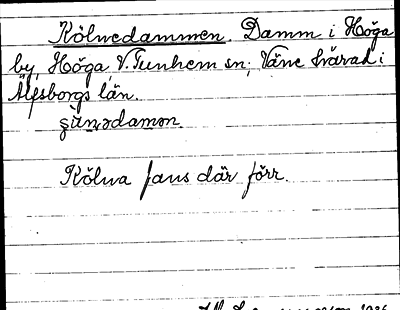 Kölnedammen. Damm i Höga
by, Höga, V. Tunhem sn; Väne härad i
Älfsborgs län.
Kölna fans där förr.